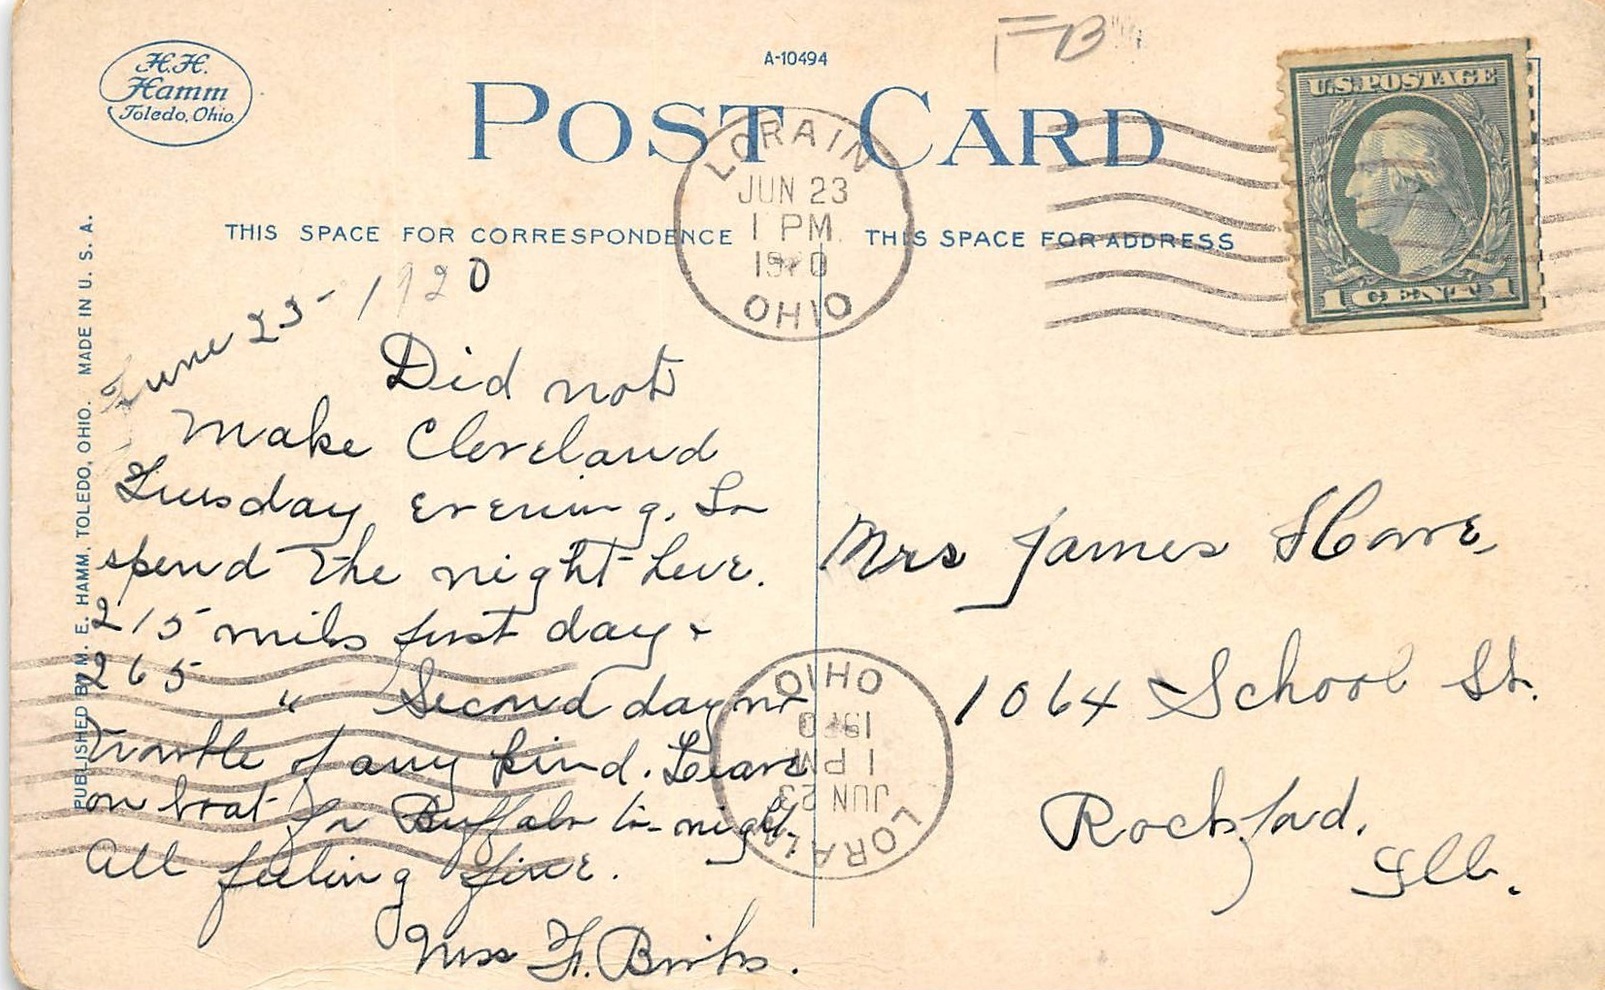 H.H.
Hamm
Toledo, Ohio.
A-10494
FB
POST CARD
U.S. POSTAGE
1 CENT 1
LORAIN
JUN 23
1 PM
1920
OHIO
THIS SPACE FOR CORRESPONDENCE
THIS SPACE FOR ADDRESS
PUBLISHED BY M. E. HAMM, TOLEDO, OHIO. MADE IN U. S. A.
June 23 - 1920
Did not
make Cleveland
Tuesday evening. So
spend the night here.
215 miles first day &
265 " Second day no
trouble of any kind. Leave
on boat for Buffalo to-night.
All feeling fine.
Miss F. Binks.
Mrs James Howe,
1064 School St.
Rockford.
Ills.
LORAIN
JUN 23
1 PM
1920
OHIO